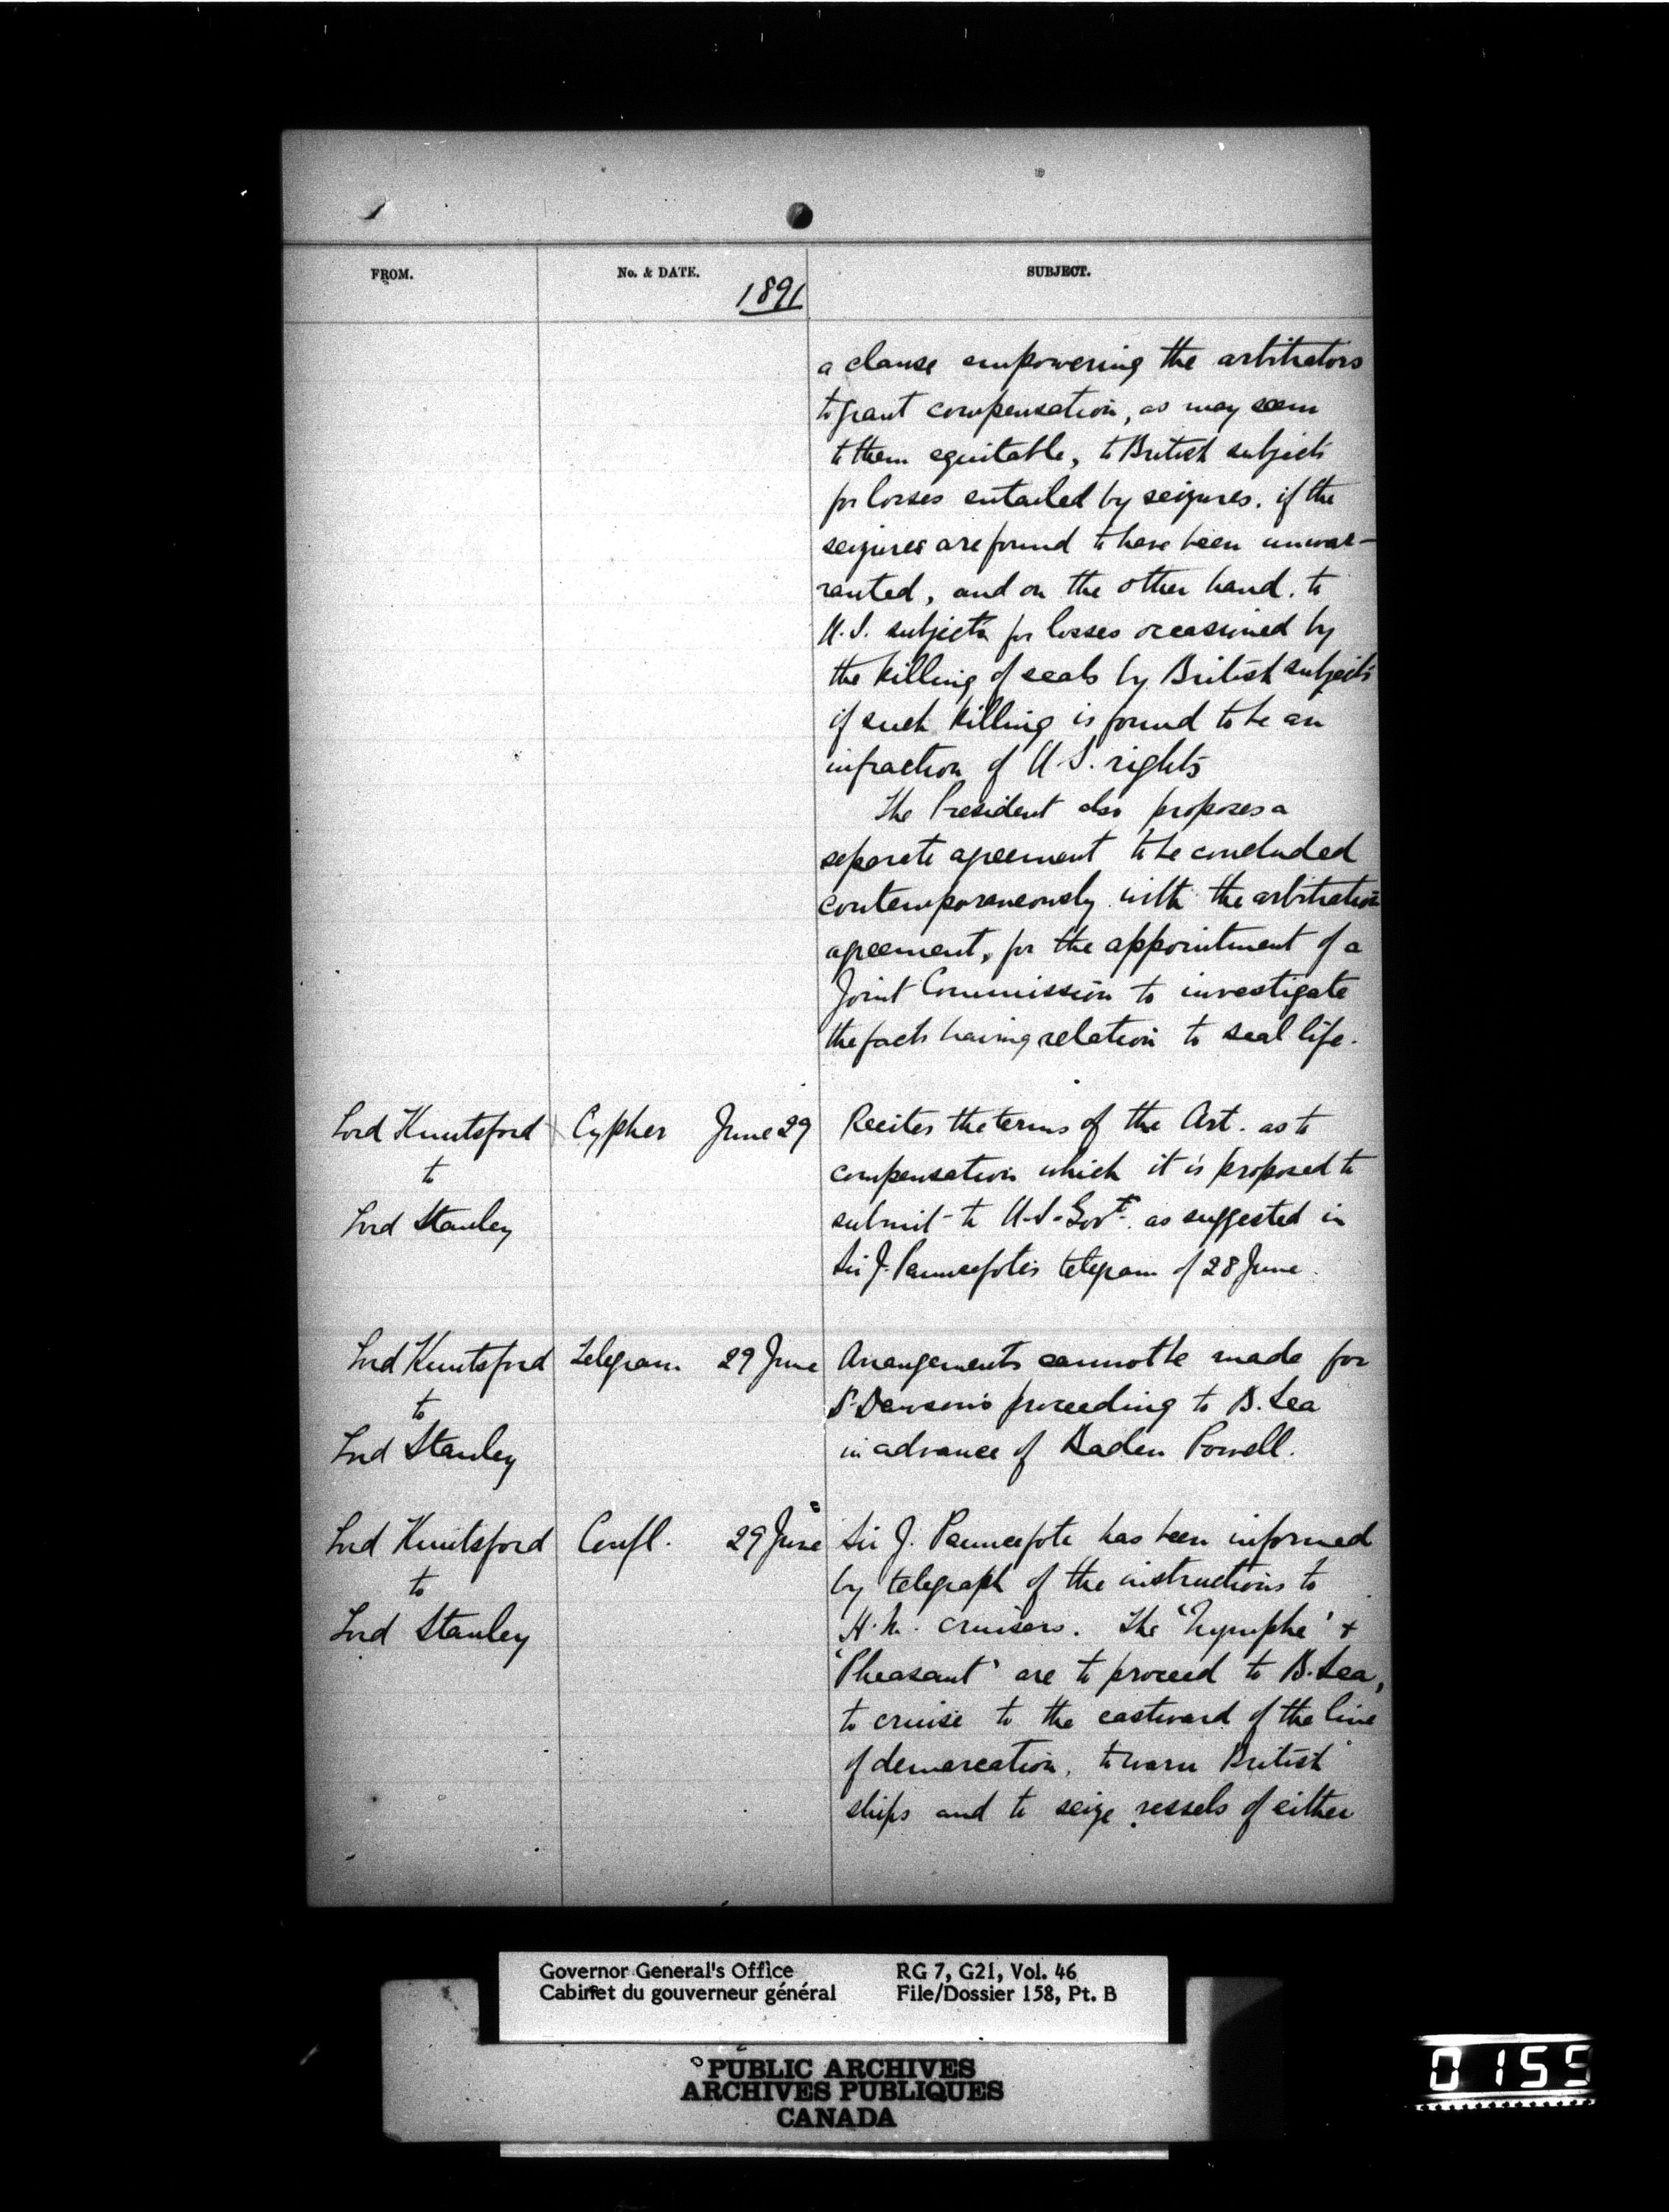 FROM.
No. & DATE.
SUBJECT.
1891
a clause empowering the arbitrators
to grant compensation, as may seem
to them equitable, to British subjects
for losses entailed by seizures, if the
seizures are found to have been unwar-
ranted, and on the other hand, to
U.S. subjects for losses occasioned by
the killing of seals by British subjects
if such killing is found to be an
infraction of U.S. rights
The President also proposes a
separate agreement to be concluded
contemporaneously with the arbitration
agreement, for the appointment of a
Joint Commission to investigate
the facts having relation to seal life.
Lord Knutsford
to
Lord Stanley
Cypher June 29
Recites the terms of the Art. as to
compensation which it is proposed to
submit to U.S. Govt. as suggested in
Sir J. Pauncefote's telegram of 28 June.
Lord Knutsford
to
Lord Stanley
Telegram 29 June
Arrangements cannot be made for
Dr Dawson's proceeding to B. Sea
in advance of Baden Powell.
Lord Knutsford
to
Lord Stanley
Confl. 29 June
Sir J. Pauncefote has been informed
by telegraph of the instructions to
H.M. cruisers. The 'Nymphe' &
'Pheasant' are to proceed to B. Sea,
to cruise to the eastward of the line
of demarcation, to warn British
ships and to seize vessels of either
Governor General's Office
Cabinet du gouverneur général
RG 7, G21, Vol. 46
File/Dossier 158, Pt. B
PUBLIC ARCHIVES
ARCHIVES PUBLIQUES
CANADA
0155